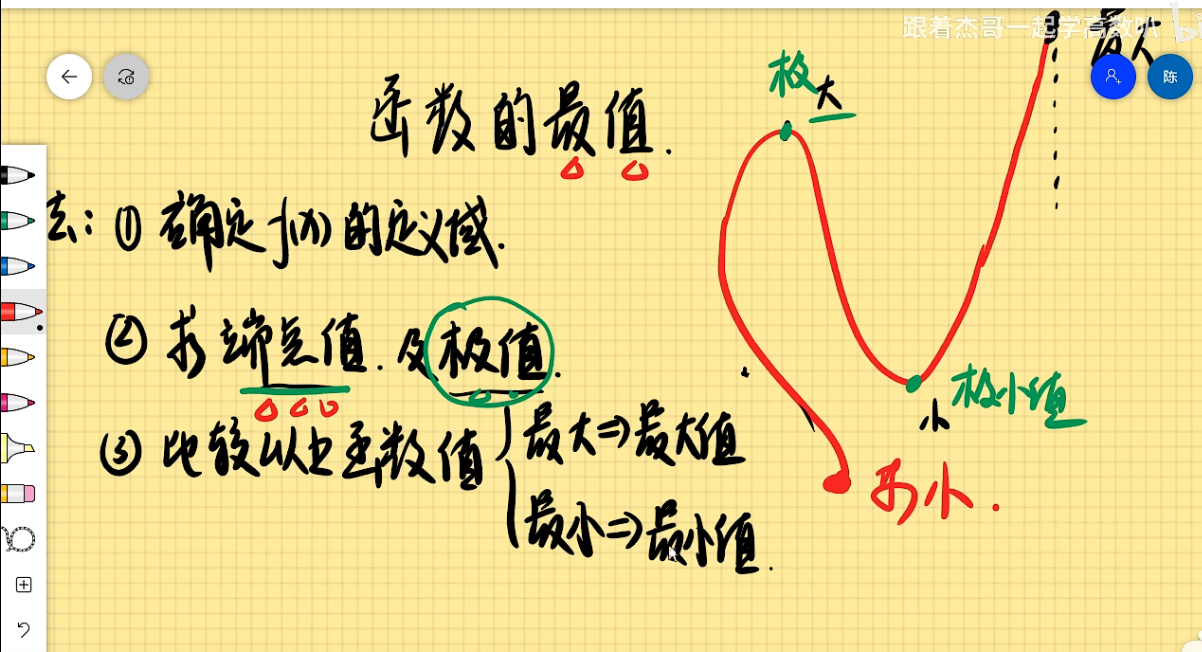 跟着杰哥一起学高数叭
陈
函数的最值.
法: ① 确定f(x)的定义域.
② 求端点值.及极值.
③ 比较以上函数值
最大⇒最大值
最小⇒最小值.
极大
极小值
小
更小.
最大